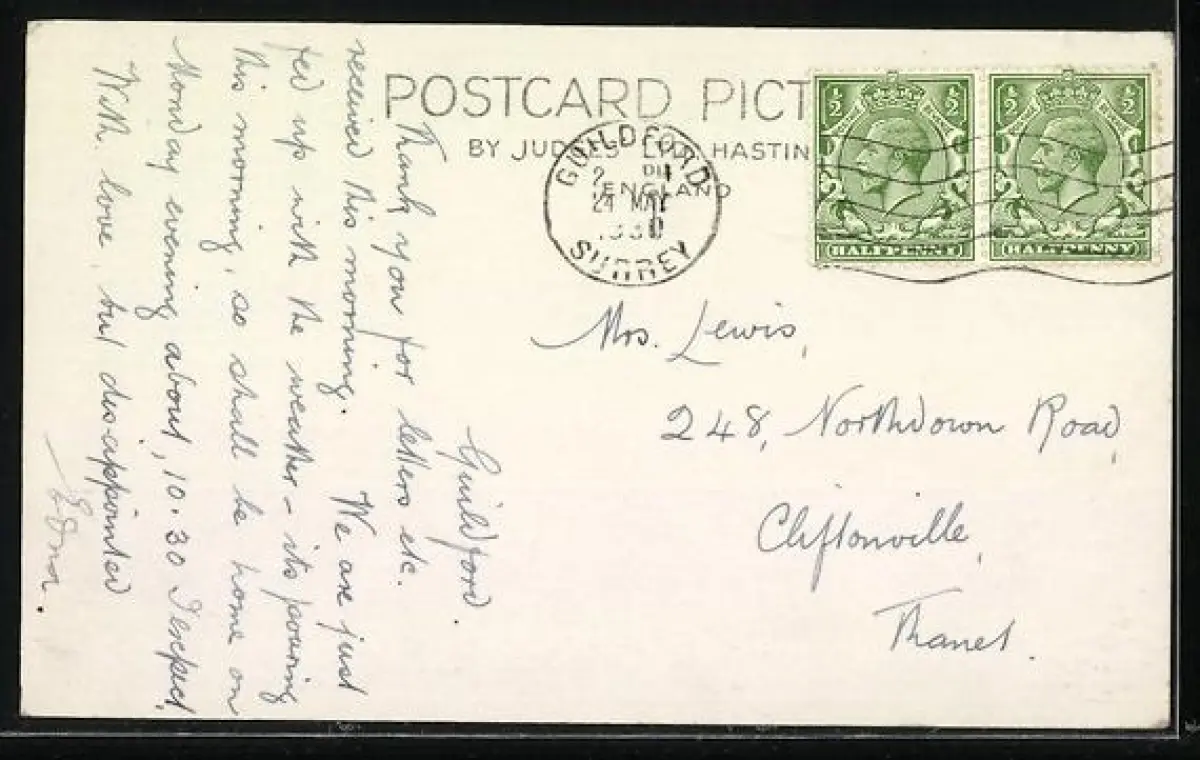 POSTCARD PICT
BY JUDGES LTD HASTIN
ENGLAND
GUILDFORD
2 PM
21 MAY
1930
SURREY
½ ½
HALFPENNY
½ ½
HALFPENNY
Mrs. Lewis,
248, Northdown Road,
Cliftonville,
Thanet.
Guildford.
Thank you for letters etc.
received this morning. We are just
fed up with the weather - its pouring
this morning, so shall be home on
Monday evening about, 10.30 I expect,
With love, but dis-appointed
Edna.